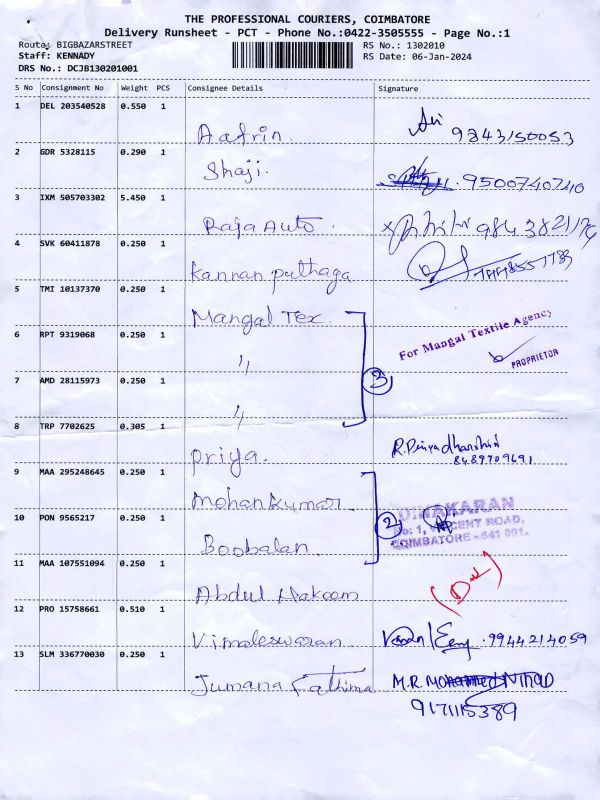 THE PROFESSIONAL COURIERS, COIMBATORE
Delivery Runsheet - PCT - Phone No.:0422-3505555 - Page No.:1
Route: BIGBAZARSTREET RS No.: 1302010
Staff: KENNADY RS Date: 06-Jan-2024
DRS No.: DCJB130201001
S No Consignment No Weight PCS Consignee Details Signature
1 DEL 203540528 0.550 1
Aafrin. 9843150053
2 GDR 5328115 0.290 1
Shaji. 9500740740
3 IXM 505703302 5.450 1
Raja Auto.
4 SVK 60411878 0.250 1
Kannan puthaga
5 TMI 10137370 0.250 1
Mangal Tex
For Mangal Textile Agency
PROPRIETOR
6 RPT 9319068 0.250 1
〃
7 AMD 28115973 0.250 1
3
〃
8 TRP 7702625 0.305 1
priya. R.Priyadharshini
8489709691
9 MAA 295248645 0.250 1
Mohan kumar
DINAKARAN
No: 1, VINCENT ROAD,
COIMBATORE - 641 001.
10 PON 9565217 0.250 1
2
Boobalan
11 MAA 107551094 0.250 1
Abdul Hakeem
12 PRO 15758661 0.510 1
Vimaleswaran 9944214059
13 SLM 336770030 0.250 1
Jumana Fathima M.R Mohammed Nihad
9171115389